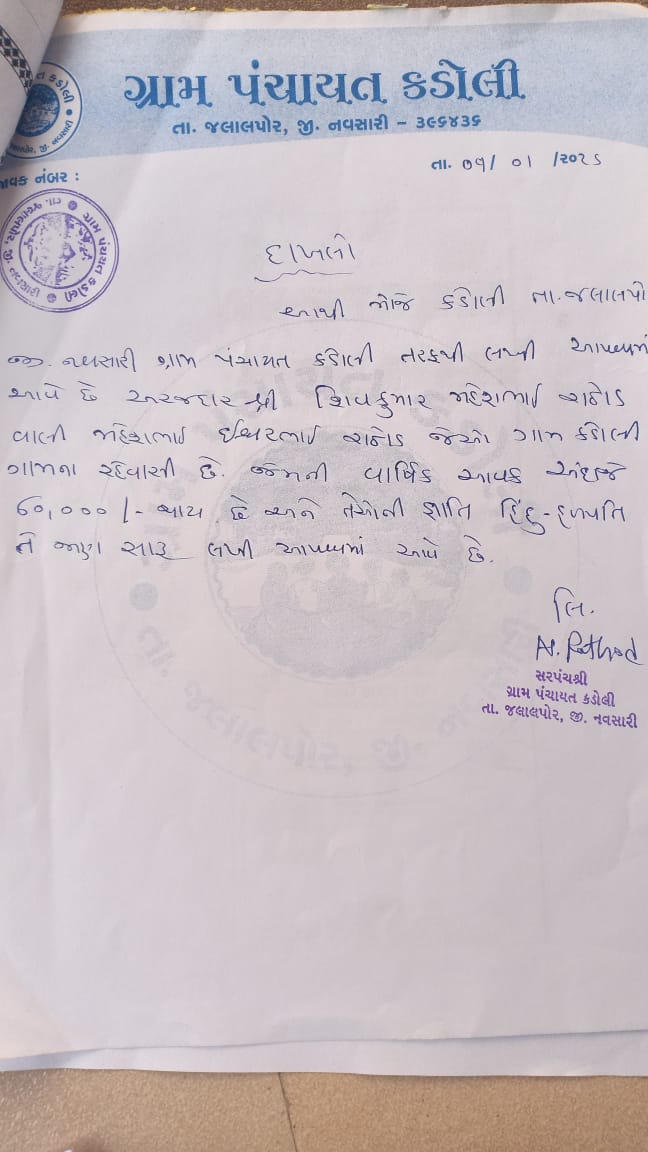 ગ્રામ પંચાયત કડોલી
તા. જલાલપોર, જી. નવસારી - ૩૯૬૪૩૬
તા. ૦૧/ ૦૧ /૨૦૨૬
જાવક નંબર :
ગ્રામ પંચાયત કડોલી
તા. જલાલપોર, જી. નવસારી
દાખલો
આથી મોજે કડોલી તા. જલાલપો
જી. નવસારી ગ્રામ પંચાયત કડોલી તરફથી લખી આપવામાં
આવે છે અરજદાર શ્રી શિવકુમાર મહેશભાઈ રાઠોડ
વાલી મહેશભાઈ ઈશ્વરભાઈ રાઠોડ જેઓ ગામ કડોલી
ગામના રહેવાસી છે. જેમની વાર્ષિક આવક અંદાજે
60,000 /- થાય છે અને તેઓની જ્ઞાતિ હિંદુ-હળપતિ
તે જાણ સારૂ લખી આપવામાં આવે છે.
લિ.
સરપંચશ્રી
ગ્રામ પંચાયત કડોલી
તા. જલાલપોર, જી. નવસારી